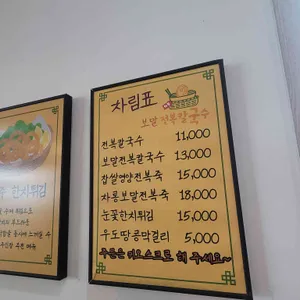 차림표
보말전복칼국수
전복칼국수 11,000
보말전복칼국수 13,000
찹쌀영양전복죽 15,000
차롱보말전복죽 18,000
눈꽃한치튀김 15,000
우도땅콩막걸리 5,000
주문은 키오스크로 해 주세요~
한치튀김